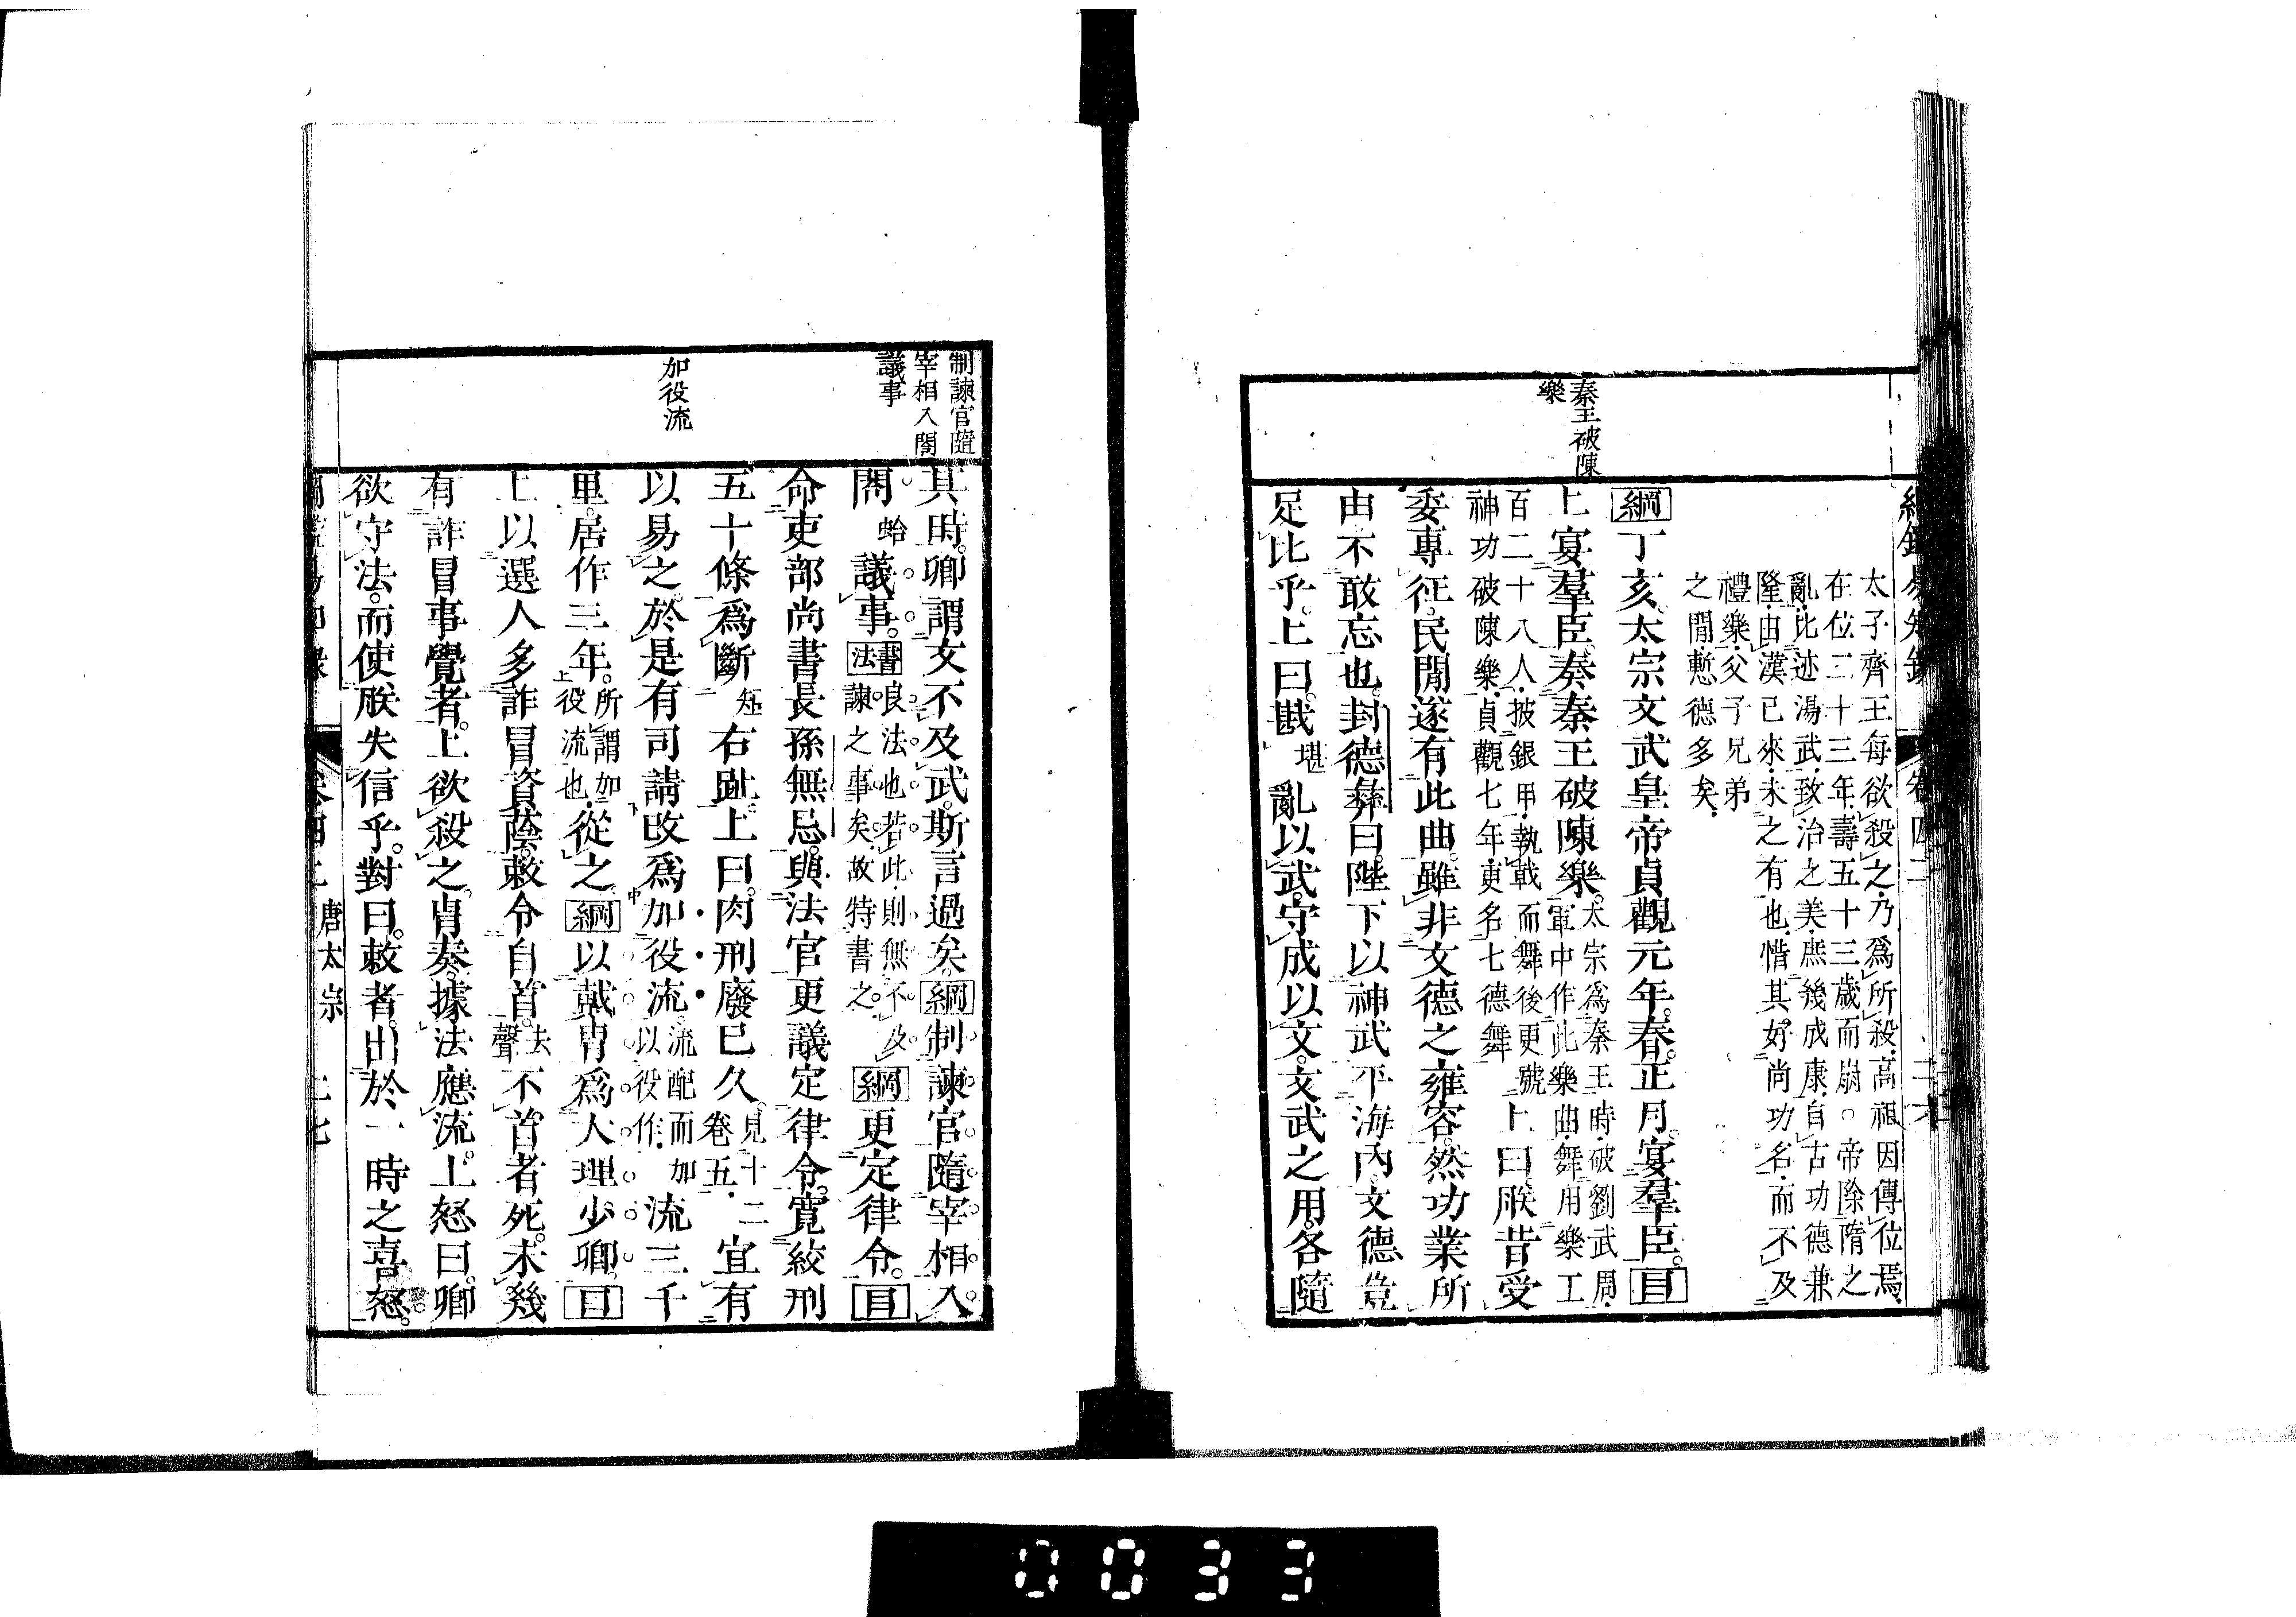 綱鑑易知錄 卷四二
太子齊王每欲殺之乃爲所殺高祖因傳位焉
在位二十三年壽五十三歲而崩○帝除隋之
亂比迹湯武致治之美庶幾成康自古功德兼
隆由漢已來未之有也惜其好尚功名而不及
禮樂父子兄弟
之閒慙德多矣
秦王破陳
樂
綱丁亥。太宗文武皇帝貞觀元年。春。正月。宴羣臣。目
上宴羣臣。奏秦王破陳樂。太宗爲秦王時破劉武周
軍中作此樂曲舞用樂工
百二十八人披銀甲執戟而舞後更號
神功破陳樂貞觀七年更名七德舞上曰。朕昔受
委專征。民閒遂有此曲。雖非文德之雍容。然功業所
由。不敢忘也。封德彝曰。陛下以神武平海內。文德豈
足比乎。上曰。戡堪亂以武。守成以文。文武之用。各隨
制諫官隨
宰相入閤
議事
其時。卿謂文不及武。斯言過矣。綱制諫官隨宰相入
閤蛤議事。書法
良法也若此則無不及
諫之事矣故特書之綱更定律令。目
命吏部尚書長孫無忌。與法官更議定律令。寬絞刑
五十條爲斷短右趾。上曰。肉刑廢已久。見十二
卷五宜有
加役流
以易之。於是有司請改爲加役流。流配而加
以役作流三千
里。居作三年。所謂加
役流也從之。綱以戴冑爲大理少卿。目
上以選人多詐冒資蔭。敕令自首。去
聲不首者死。未幾
有詐冒事覺者。上欲殺之。冑奏。據法應流。上怒曰。卿
欲守法。而使朕失信乎。對曰。敕者。出於一時之喜怒。
卷四二 唐太宗 二七
0033